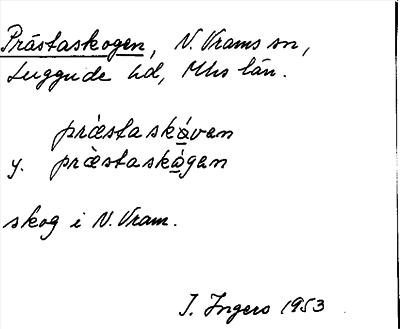 Prästaskogen, N. Vrams sn,
Luggude hd, Mhs län.
præ̀staskåvan
y. præ̀staskågen
skog i N. Vram.
I. Ingers 1953